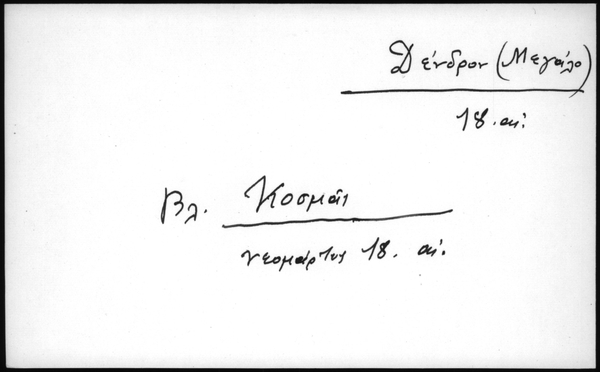 Δένδρον (Μεγάλο)
18. αι.
Βλ. Κοσμᾶς
νεομάρτυς 18. αι.